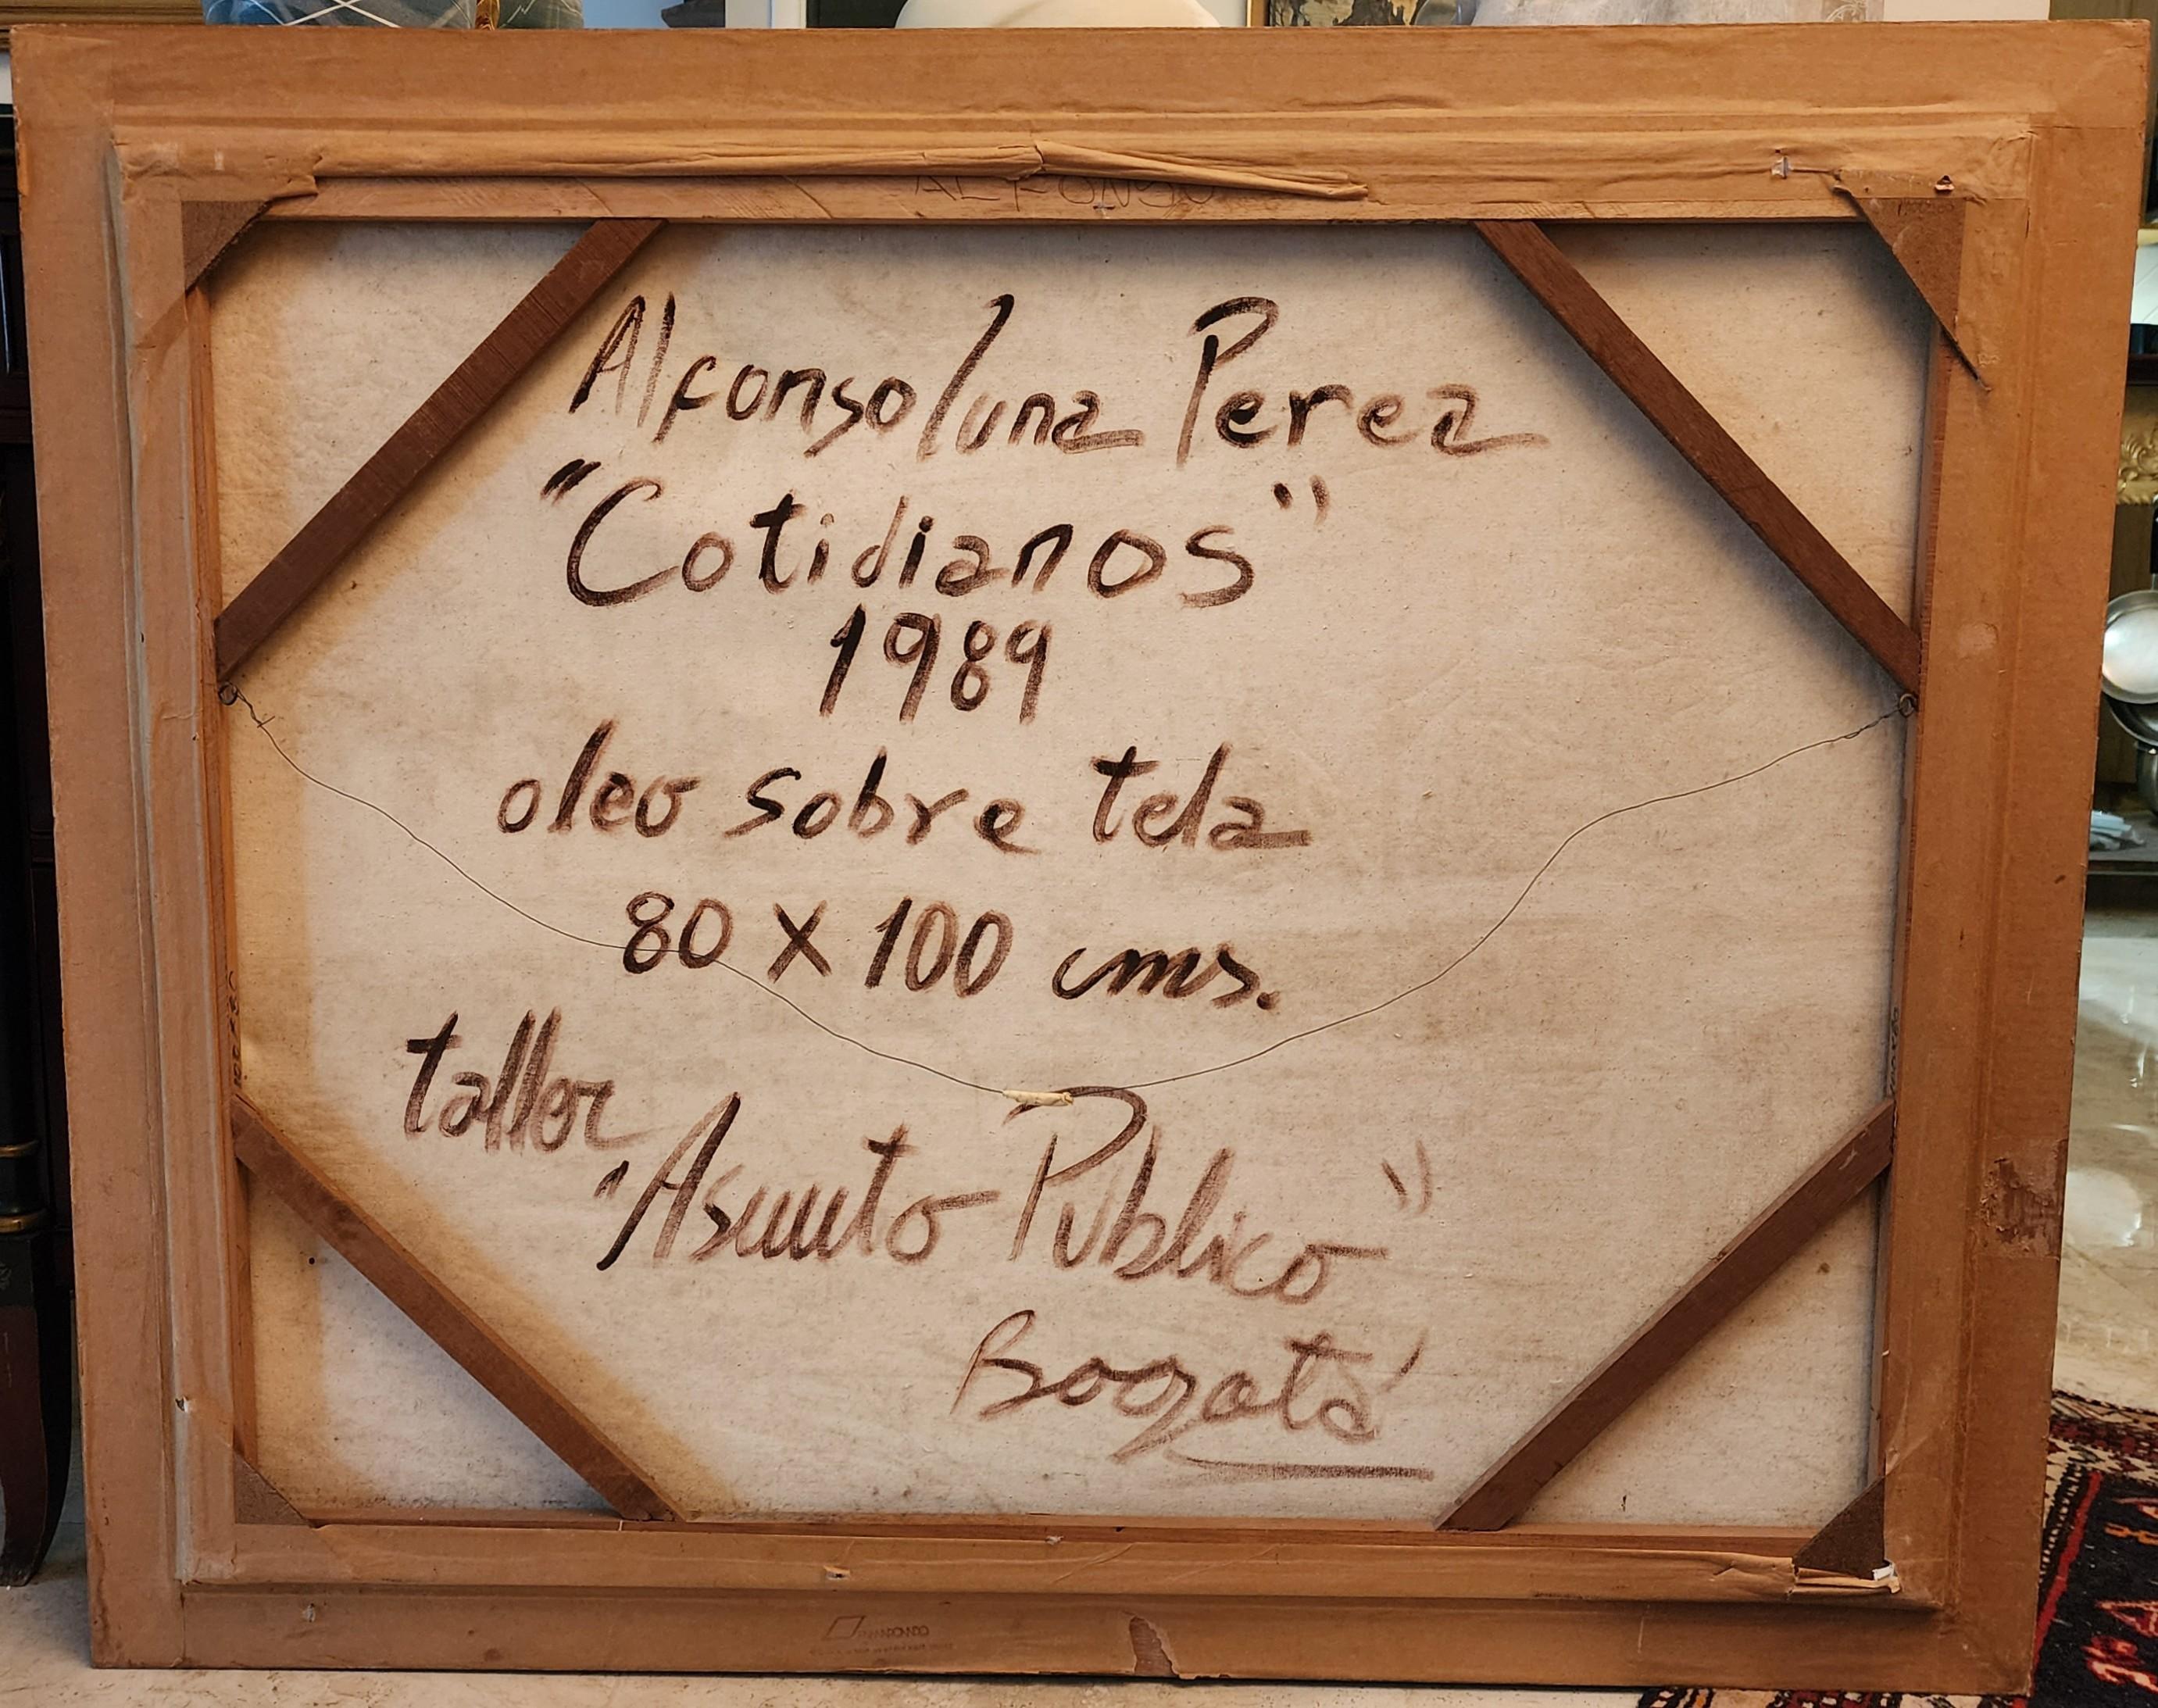 ALFONSO
Alfonso luna Perez
"Cotidianos"
1989
oleo sobre tela
80 X 100 cms.
taller
"Asunto Publico"
Bogotá